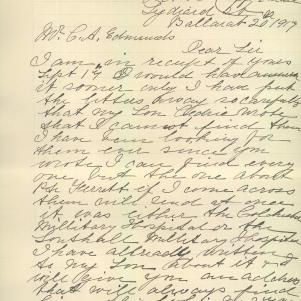 Lydiard St
Ballarat 20 1917
Mr. C. A. Edmunds
Dear Sir
I am in receipt of yours
Sept 17 I would have
it sooner only I have put
the letters away so carefully
that my Son Cedric wrote
that I cannot find them
I have been looking for
them ever since you
wrote I can find every
one but the one about
Pte Kerrett if I come across
them will send at once
it was either the Colchester
Millitary Hospital or the
Millitary Hospital
I have allready written
to my Son about it &
will give you an address
that will always find